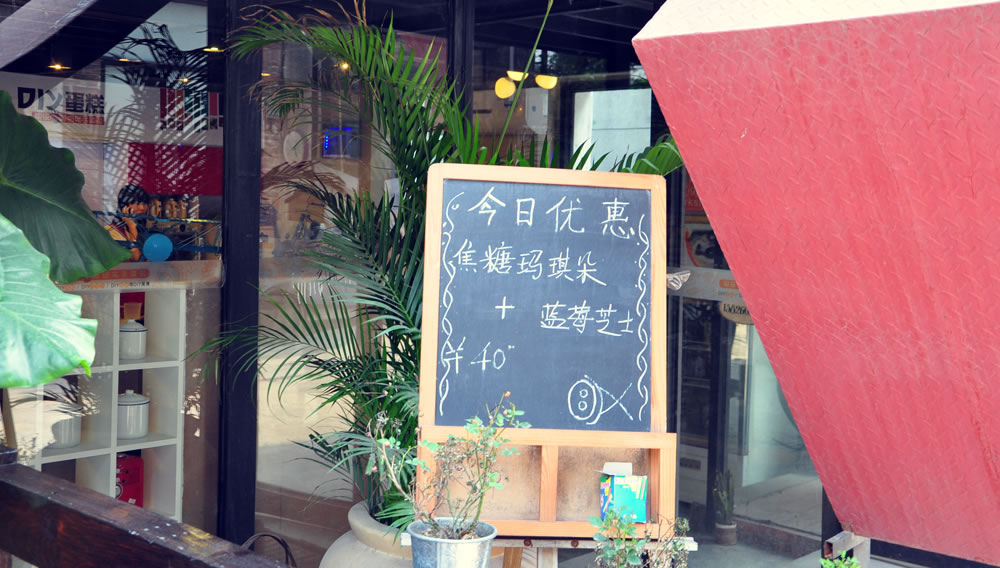 DIY蛋糕
今日优惠
焦糖玛琪朵
+ 蓝莓芝士
￥40